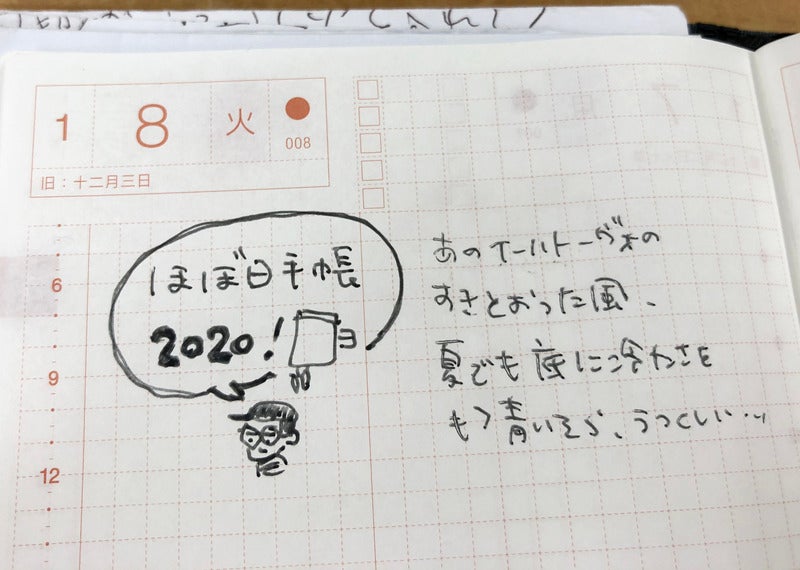 1 8 火
008
旧:十二月三日
6
9
12
ほぼ日手帳
2020!
あのイーハトーヴォの
すきとおった風、
夏でも底に冷たさを
もつ青いそら、うつくしい…